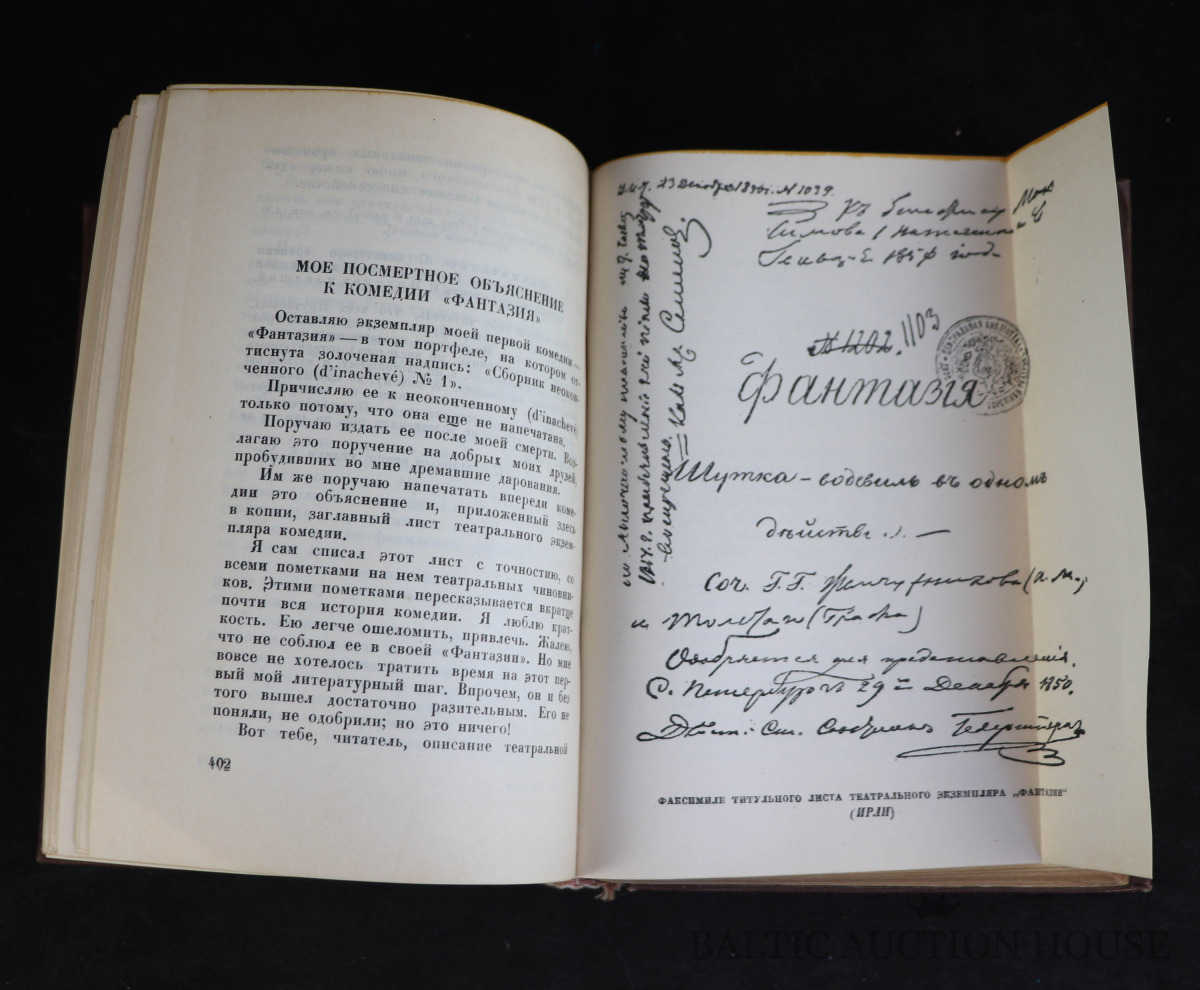 МОЕ ПОСМЕРТНОЕ ОБЪЯСНЕНИЕ
К КОМЕДИИ «ФАНТАЗИЯ»
Оставляю экземпляр моей первой комедии —
«Фантазия» — в том портфеле, на котором от-
тиснута золоченая надпись: «Сборник неокон-
ченного (d'inachevé) № 1».
Причисляю ее к неоконченному (d'inachevé)
только потому, что она еще не напечатана.
Поручаю издать ее после моей смерти. Воз-
лагаю это поручение на добрых моих друзей,
пробудивших во мне дремавшие дарования.
Им же поручаю напечатать впереди коме-
дии это объяснение и, приложенный здесь
в копии, заглавный лист театрального экзем-
пляра комедии.
Я сам списал этот лист с точностию, со
всеми пометками на нем театральных чиновни-
ков. Этими пометками пересказывается вкратце
почти вся история комедии. Я люблю крат-
кость. Ею легче ошеломить, привлечь. Жалею,
что не соблюл ее в своей «Фантазии». Но мне
вовсе не хотелось тратить время на этот пер-
вый мой литературный шаг. Впрочем, он и без
того вышел достаточно разительным. Его не
поняли, не одобрили; но это ничего!
Вот тебе, читатель, описание театральной
402
23 Декабря 1850 г. № 1039.
№ 1202. 1103
Фантазія
Шутка - водевиль въ одномъ
дѣйствіи. —
Соч. Г.Г. Жемчужникова (А. М.)
и Толстаго (Графа)
Одобряется для представленія.
С. Петербургъ 29го Декабря 1850.
ФАКСИМИЛЕ ТИТУЛЬНОГО ЛИСТА ТЕАТРАЛЬНОГО ЭКЗЕМПЛЯРА „ФАНТАЗИИ"
(ИРЛИ)
BALTIC AUCTION HOUSE